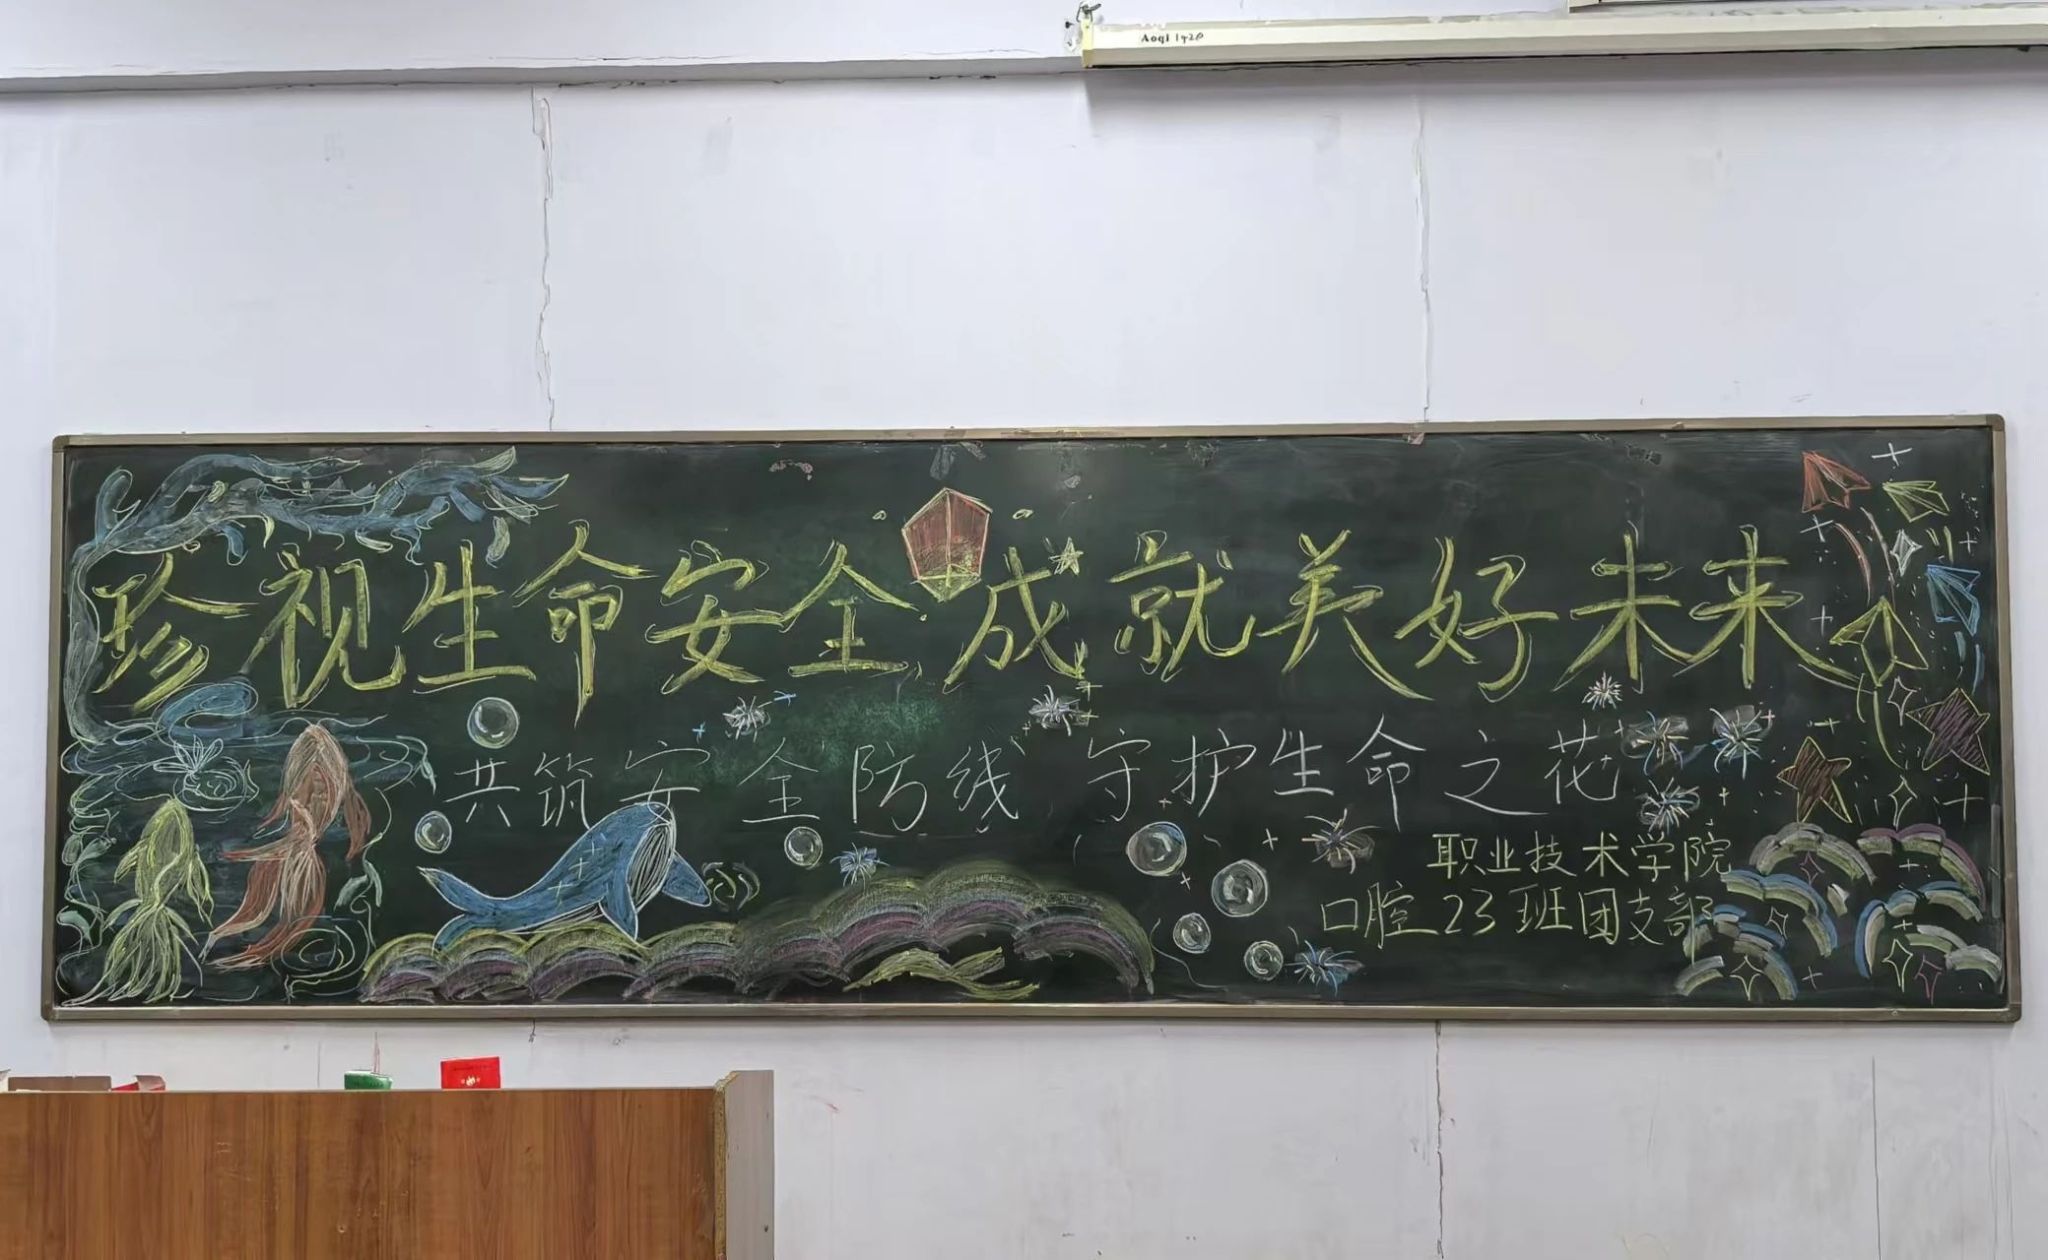 Aoqi 1920
珍视生命安全 成就美好未来
共筑安全防线 守护生命之花
职业技术学院
口腔23班团支部